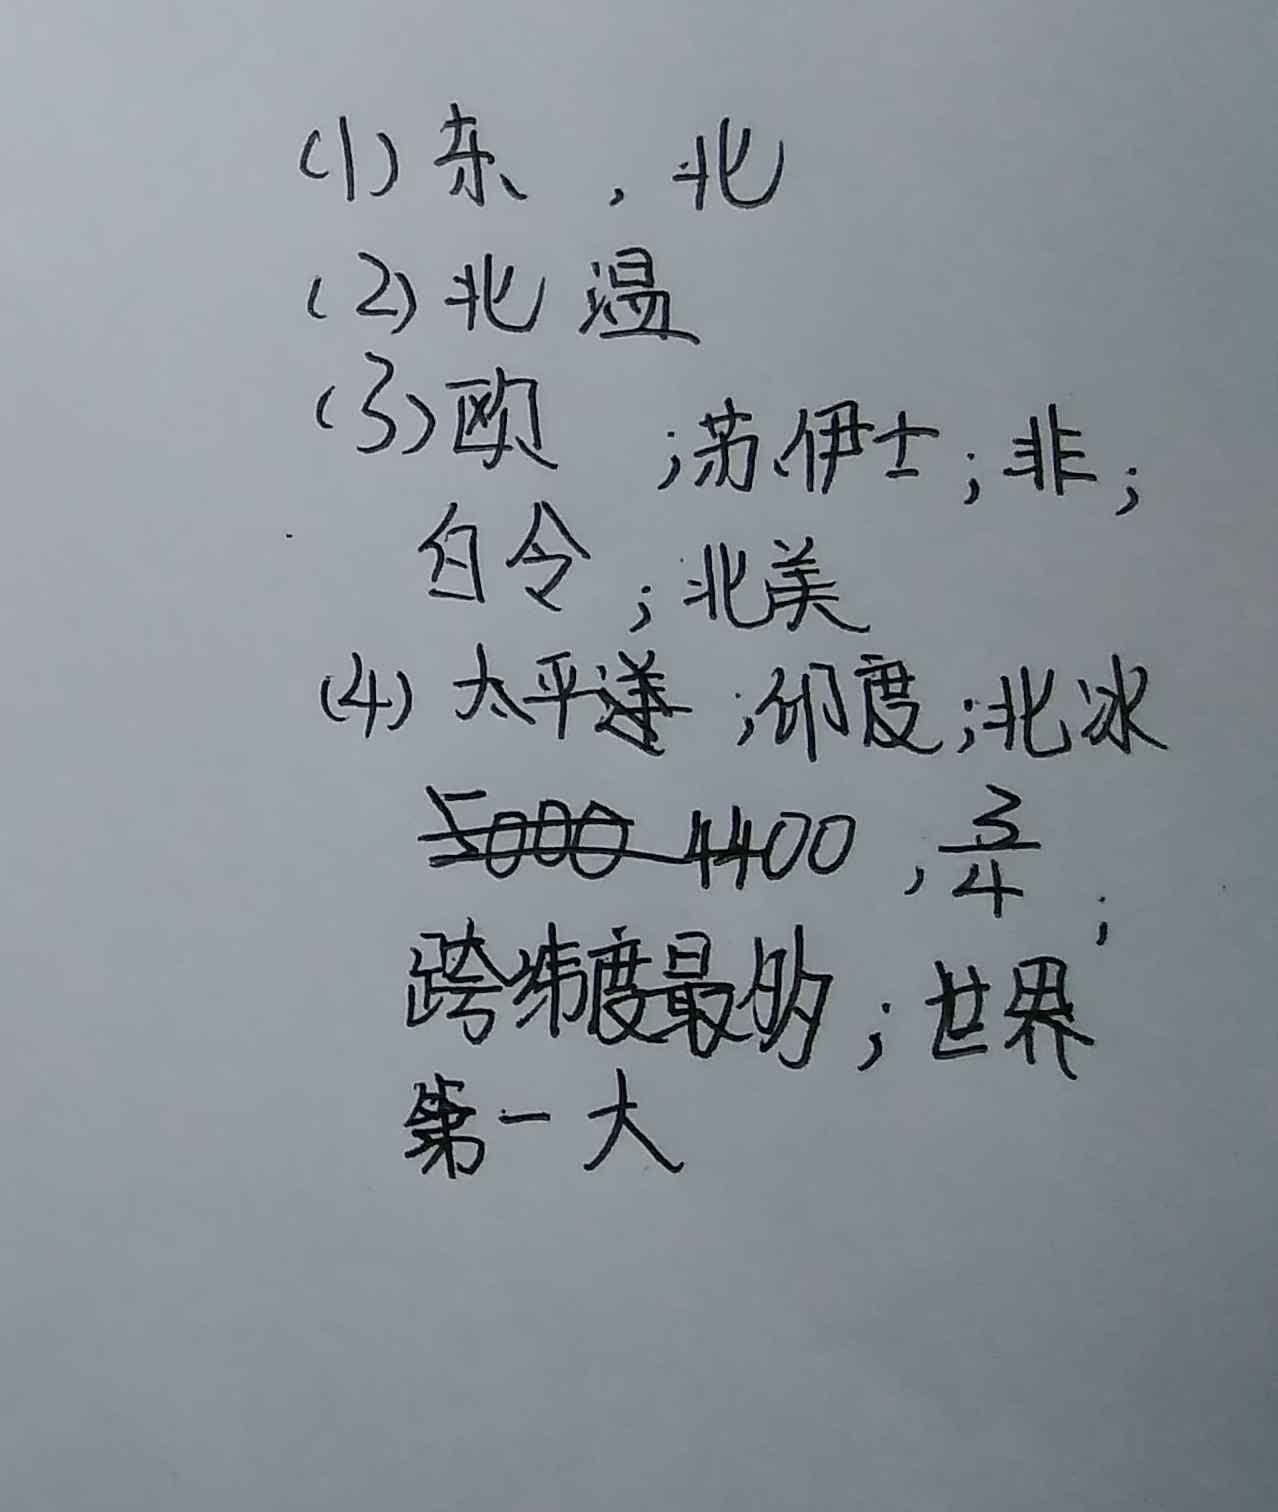 (1)东,北
(2)北温
(3)欧;苏伊士;非;
白令;北美
(4)太平洋;印度;北冰
4400,3/4;
跨纬度最多的;世界
第一大